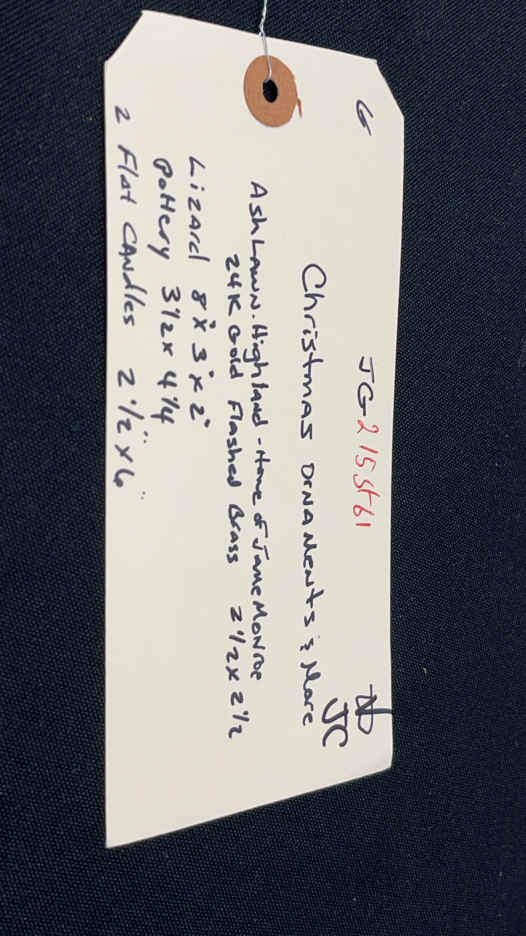 G JG-215st61 N
JC
Christmas Ornaments & More
Ash Lawn-Highland-Home of Jame Monroe
24K Gold Flashed Brass 2 1/2 x 2 1/2
Lizard 8" x 3" x 2"
Pottery 3 1/2 x 4 1/4
2 Flat Candles 2 1/2" x 6"